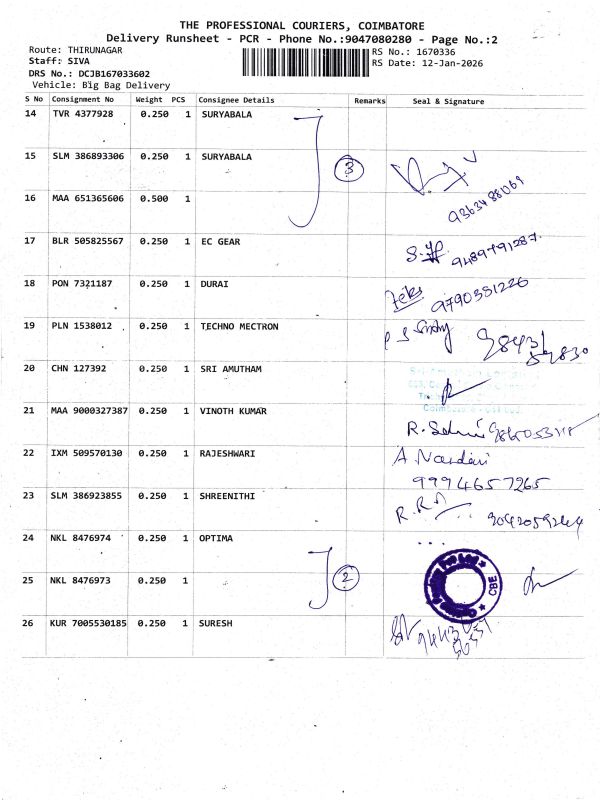 THE PROFESSIONAL COURIERS, COIMBATORE
Delivery Runsheet - PCR - Phone No.:9047080280 - Page No.:2
Route: THIRUNAGAR
RS No.: 1670336
Staff: SIVA
RS Date: 12-Jan-2026
DRS No.: DCJB167033602
Vehicle: Big Bag Delivery
S No Consignment No Weight PCS Consignee Details Remarks Seal & Signature
14 TVR 4377928 0.250 1 SURYABALA
15 SLM 386893306 0.250 1 SURYABALA
3
16 MAA 651365606 0.500 1
9363488069
17 BLR 505825567 0.250 1 EC GEAR
9489791287.
18 PON 7321187 0.250 1 DURAI
9790351226
19 PLN 1538012 0.250 1 TECHNO MECTRON
20 CHN 127392 0.250 1 SRI AMUTHAM
21 MAA 9000327387 0.250 1 VINOTH KUMAR
22 IXM 509570130 0.250 1 RAJESHWARI
9994657265
23 SLM 386923855 0.250 1 SHREENITHI
24 NKL 8476974 0.250 1 OPTIMA
25 NKL 8476973 0.250 1
2
CBE
26 KUR 7005530185 0.250 1 SURESH